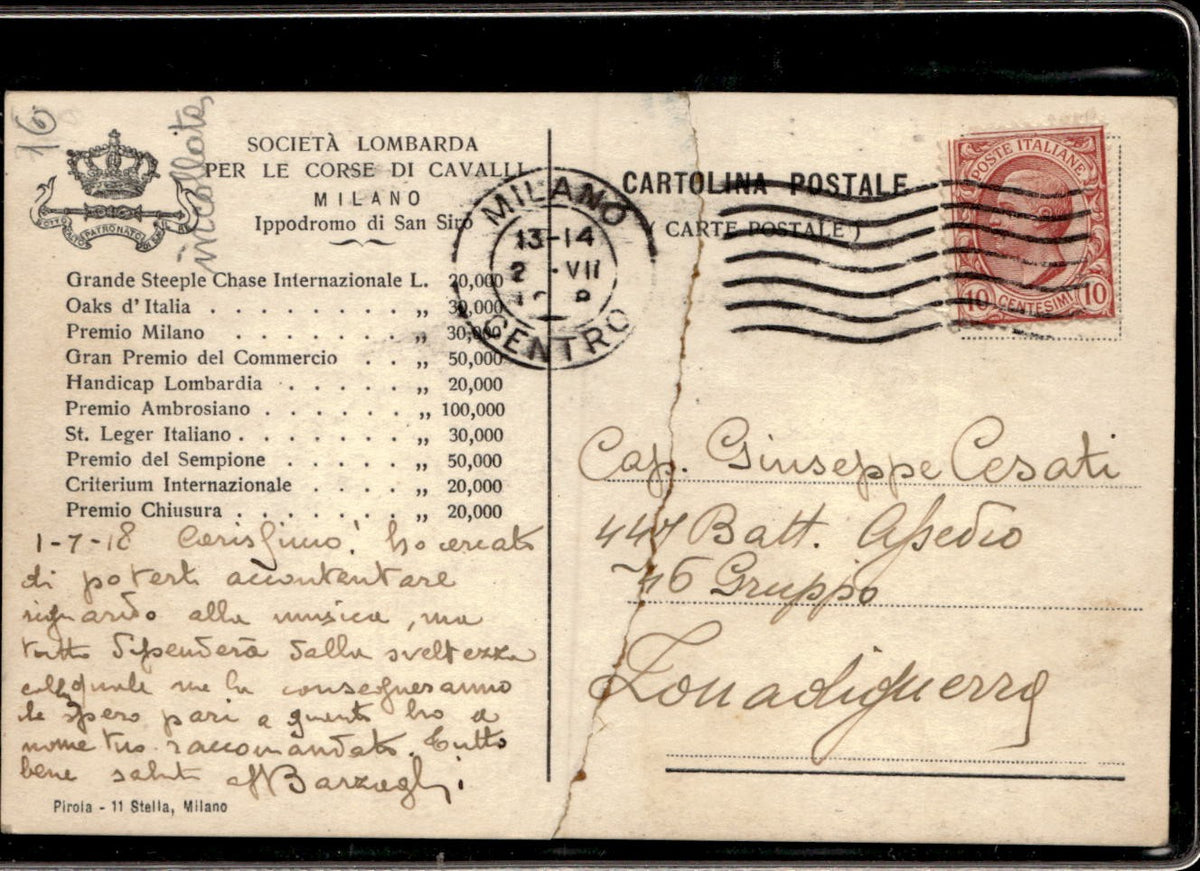 16
SOCIETÀ LOMBARDA
PER LE CORSE DI CAVALLI
MILANO
Ippodromo di San Siro
SOTTO ALTO PATRONATO
Grande Steeple Chase Internazionale L. 20,000
Oaks d'Italia . . . . . . . . „ 30,000
Premio Milano . . . . . . . „ 30,000
Gran Premio del Commercio . . „ 50,000
Handicap Lombardia . . . . . „ 20,000
Premio Ambrosiano . . . . . . „ 100,000
St. Leger Italiano . . . . . . . „ 30,000
Premio del Sempione . . . . . „ 50,000
Criterium Internazionale . . . . „ 20,000
Premio Chiusura . . . . . . . „ 20,000
1-7-18 Carissimo! ho cercato
di poterti accontentare
riguardo alla musica, ma
tutto dipenderà dalla sveltezza
colla quale me la consegneranno
spero pari a quanto ho a
nome tuo raccomandato. Tutto
bene saluti aff Barzaghi
Pirola - 11 Stella, Milano
MILANO
13-14
2 - VII
CENTRO
CARTOLINA POSTALE
( CARTE POSTALE )
POSTE ITALIANE
10 CENTESIMI 10
Cap. Giuseppe Cesati
447 Batt. Assedio
76 Gruppo
Zona di guerra